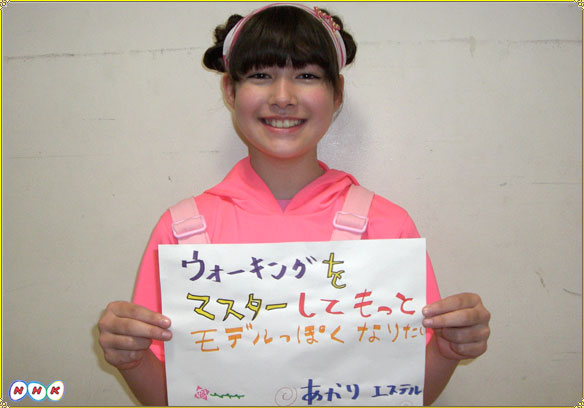 ウォーキングを
マスターしてもっと
モデルっぽくなりたい
あかり エステル
NHK